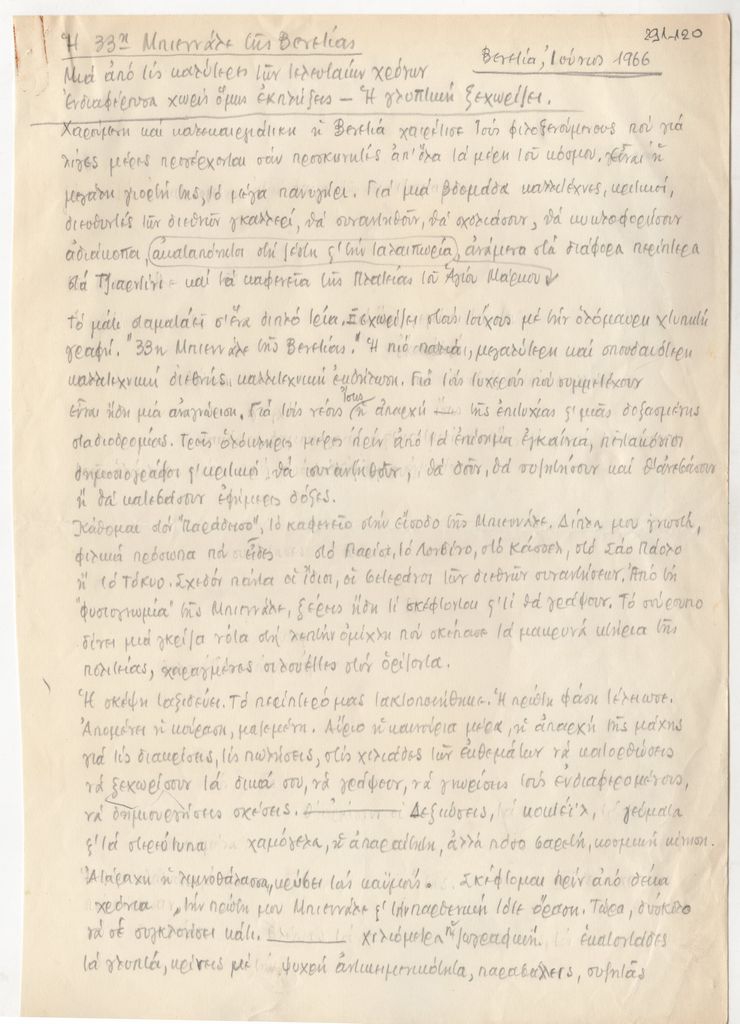 231-120
Ἡ 33η Μπιεννάλε τῆς Βενετίας
Βενετία, Ἰούνιος 1966
Μιά ἀπό τίς καλύτερες τῶν τελευταίων χρόνων
Ἐνδιαφέρουσα χωρίς ὅμως ἐκπλήξεις – Ἡ γλυπτική ξεχωρίζει.
Χαρούμενη καί καλοκαιριάτικη ἡ Βενετιά χαιρέτισε τούς φιλοξενούμενους πού γιά
λίγες μέρες προσέρχονται σάν προσκυνητές ἀπ' ὅλα τά μέρη τοῦ κόσμου. Εἶναι ἡ
μεγάλη γιορτή της, τό μέγα πανηγύρι. Γιά μιά βδομάδα καλλιτέχνες, κριτικοί,
διευθυντές τῶν διεθνῶν γκαλλερί, θά συναντηθοῦν, θά σχολιάσουν, θά κυκλοφορήσουν
ἀδιάκοπα, ἀκαταπόνητοι στή ζέστη ς' τήν ταλαιπωρία, ἀνάμεσα στά διάφορα περίπτερα
στά Τζιαρντίνι - καί τά καφενεῖα τῆς Πλατείας τοῦ Ἁγίου Μάρκου
Τό μάτι σταματάει σ' ἕνα διπλό τρία. Ξεχωρίζει στούς τοίχους μέ τήν ὁλόμαυρη χτυπητή
γραφή. "33η Μπιεννάλε τῆς Βενετίας." Ἡ πιό παλιά, μεγαλύτερη καί σπουδαιότερη
καλλιτεχνική διεθνής καλλιτεχνική ἐκδήλωση. Γιά τούς τυχερούς πού συμμετέχουν
εἶναι ἤδη μιά ἀναγνώριση. Γιά τούς νέους ἴσως ἡ ἀπαρχή τῆς ἐπιτυχίας ς' μιᾶς δοξασμένης
σταδιοδρομίας. Τρεῖς ὁλόκληρες μέρες πρίν ἀπό τά ἐπίσημα ἐγκαίνια, πεντακόσιοι
δημοσιογράφοι ς' κριτικοί, θά συναντηθοῦν, θά δοῦν, θά συζητήσουν καί θ' ἀνεβάσουν
ἤ θά κατεβάσουν ἐφήμερες δόξες.
Κάθομαι στόν "Παράδεισο", τό καφενεῖο στήν εἴσοδο τῆς Μπιεννάλε. Δίπλα μου γνωστά,
φιλικά πρόσωπα πού εἶδες στό Παρίσι, τό Λονδίνο, στό Κάσσελ, στό Σάο Πάολο
ἤ τό Τόκυο. Σχεδόν πάντα οἱ ἴδιοι, οἱ βετεράνοι τῶν διεθνῶν συναντήσεων. Ἀπό τή
"φυσιογνωμία" τῆς Μπιεννάλε, ξέρεις ἤδη τί σκέφτονται ς' τί θά γράψουν. Τό σούρουπο
δίνει μιά γκρίζα νότα στή λεπτήν ὁμίχλη πού σκέπασε τά μακρυνά κτήρια τῆς
πολιτείας, χαραγμένες σιλουέττες στόν ὁρίζοντα.
Ἡ σκέψη ταξιδεύει. Τό περίπτερό μας τακτοποιήθηκε. Ἡ πρώτη φάση τέλειωσε.
Ἀπομένει ἡ κούραση, μαζεμένη. Αὔριο ἡ καινούρια μέρα, ἡ ἀπαρχή τῆς μάχης
γιά τίς διακρίσεις, τίς πωλήσεις, στίς χιλιάδες τῶν ἐκθεμάτων νά κατορθώσεις
νά ξεχωρίσουν τά δικά σου, νά γράψουν, νά γνωρίσεις τούς ἐνδιαφερομένους,
νά δημιουργήσεις σχέσεις. Δεξιώσεις, κοκτέϊλ, γεύματα
ς' τά στερεότυπα χαμόγελα, ἡ ἀπαραίτητη, ἀλλά πόσο βαρετή, κοσμική κίνηση.
Ἀτάραχη ἡ λιμνοθάλασσα, κρύβει τούς καϋμούς. Σκέφτομαι πρίν ἀπό δέκα
χρόνια τήν πρώτη μου Μπιεννάλε ς' τήν παρθενική τότε ὅραση. Τώρα, δύσκολο
νά σέ συγκλονίσει κάτι. χιλιόμετρα ἡ ζωγραφική. ἑκατοντάδες
τά γλυπτά, κρίνεις μέ ψυχρή ἀντικειμενικότητα, παραβάλεις, συζητᾶς